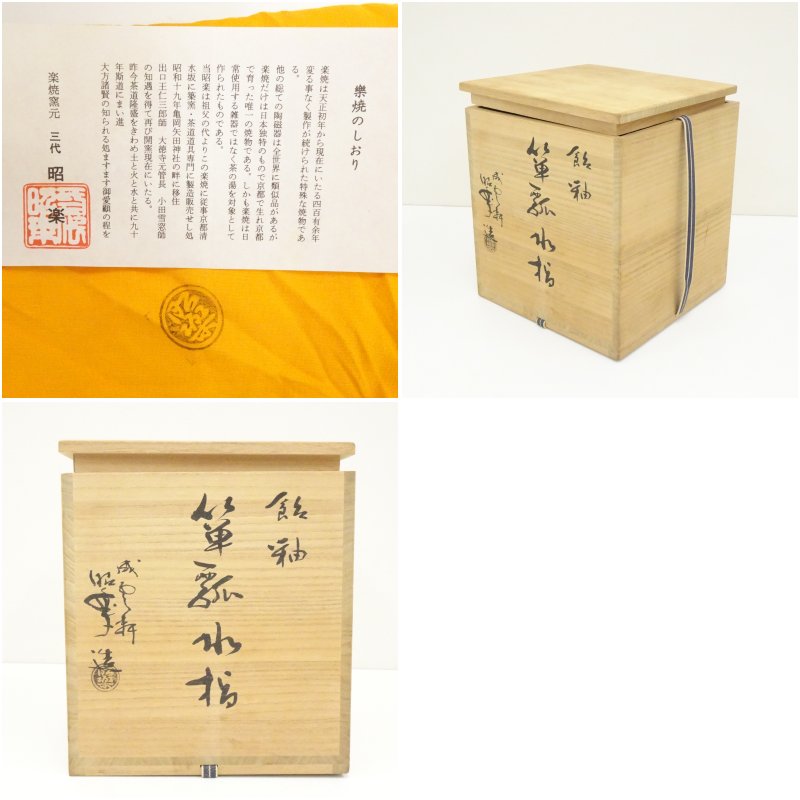 樂焼のしおり
楽焼は天正初年から現在にいたる四百有余年
変る事なく製作が続けられた特殊な焼物であ
る。
他の総ての陶磁器は全世界に類似品があるが
楽焼だけは日本独特のもので京都で生れ京都
で育った唯一の焼物である。しかも楽焼は日
常使用する雑器ではなく茶の湯を対象として
作られたものである。
当昭楽は祖父の代よりこの楽焼に従事京都清
水坂に築窑・茶道道具専門に製造販売せし処
昭和十九年亀岡矢田神社の畔に移住
出口王仁三郎師　大徳寺元管長　小田雪窓師
の知遇を得て再び開窯現在にいたる。
昨今茶道隆盛をきわめ土と火と水と共に九十
年斯道にまい進
大方諸賢の知られる処ますます御愛顧の程を
楽焼窯元　三代　昭楽
飴釉
箪瓢水指
昭楽造
飴釉
箪瓢水指
昭楽造